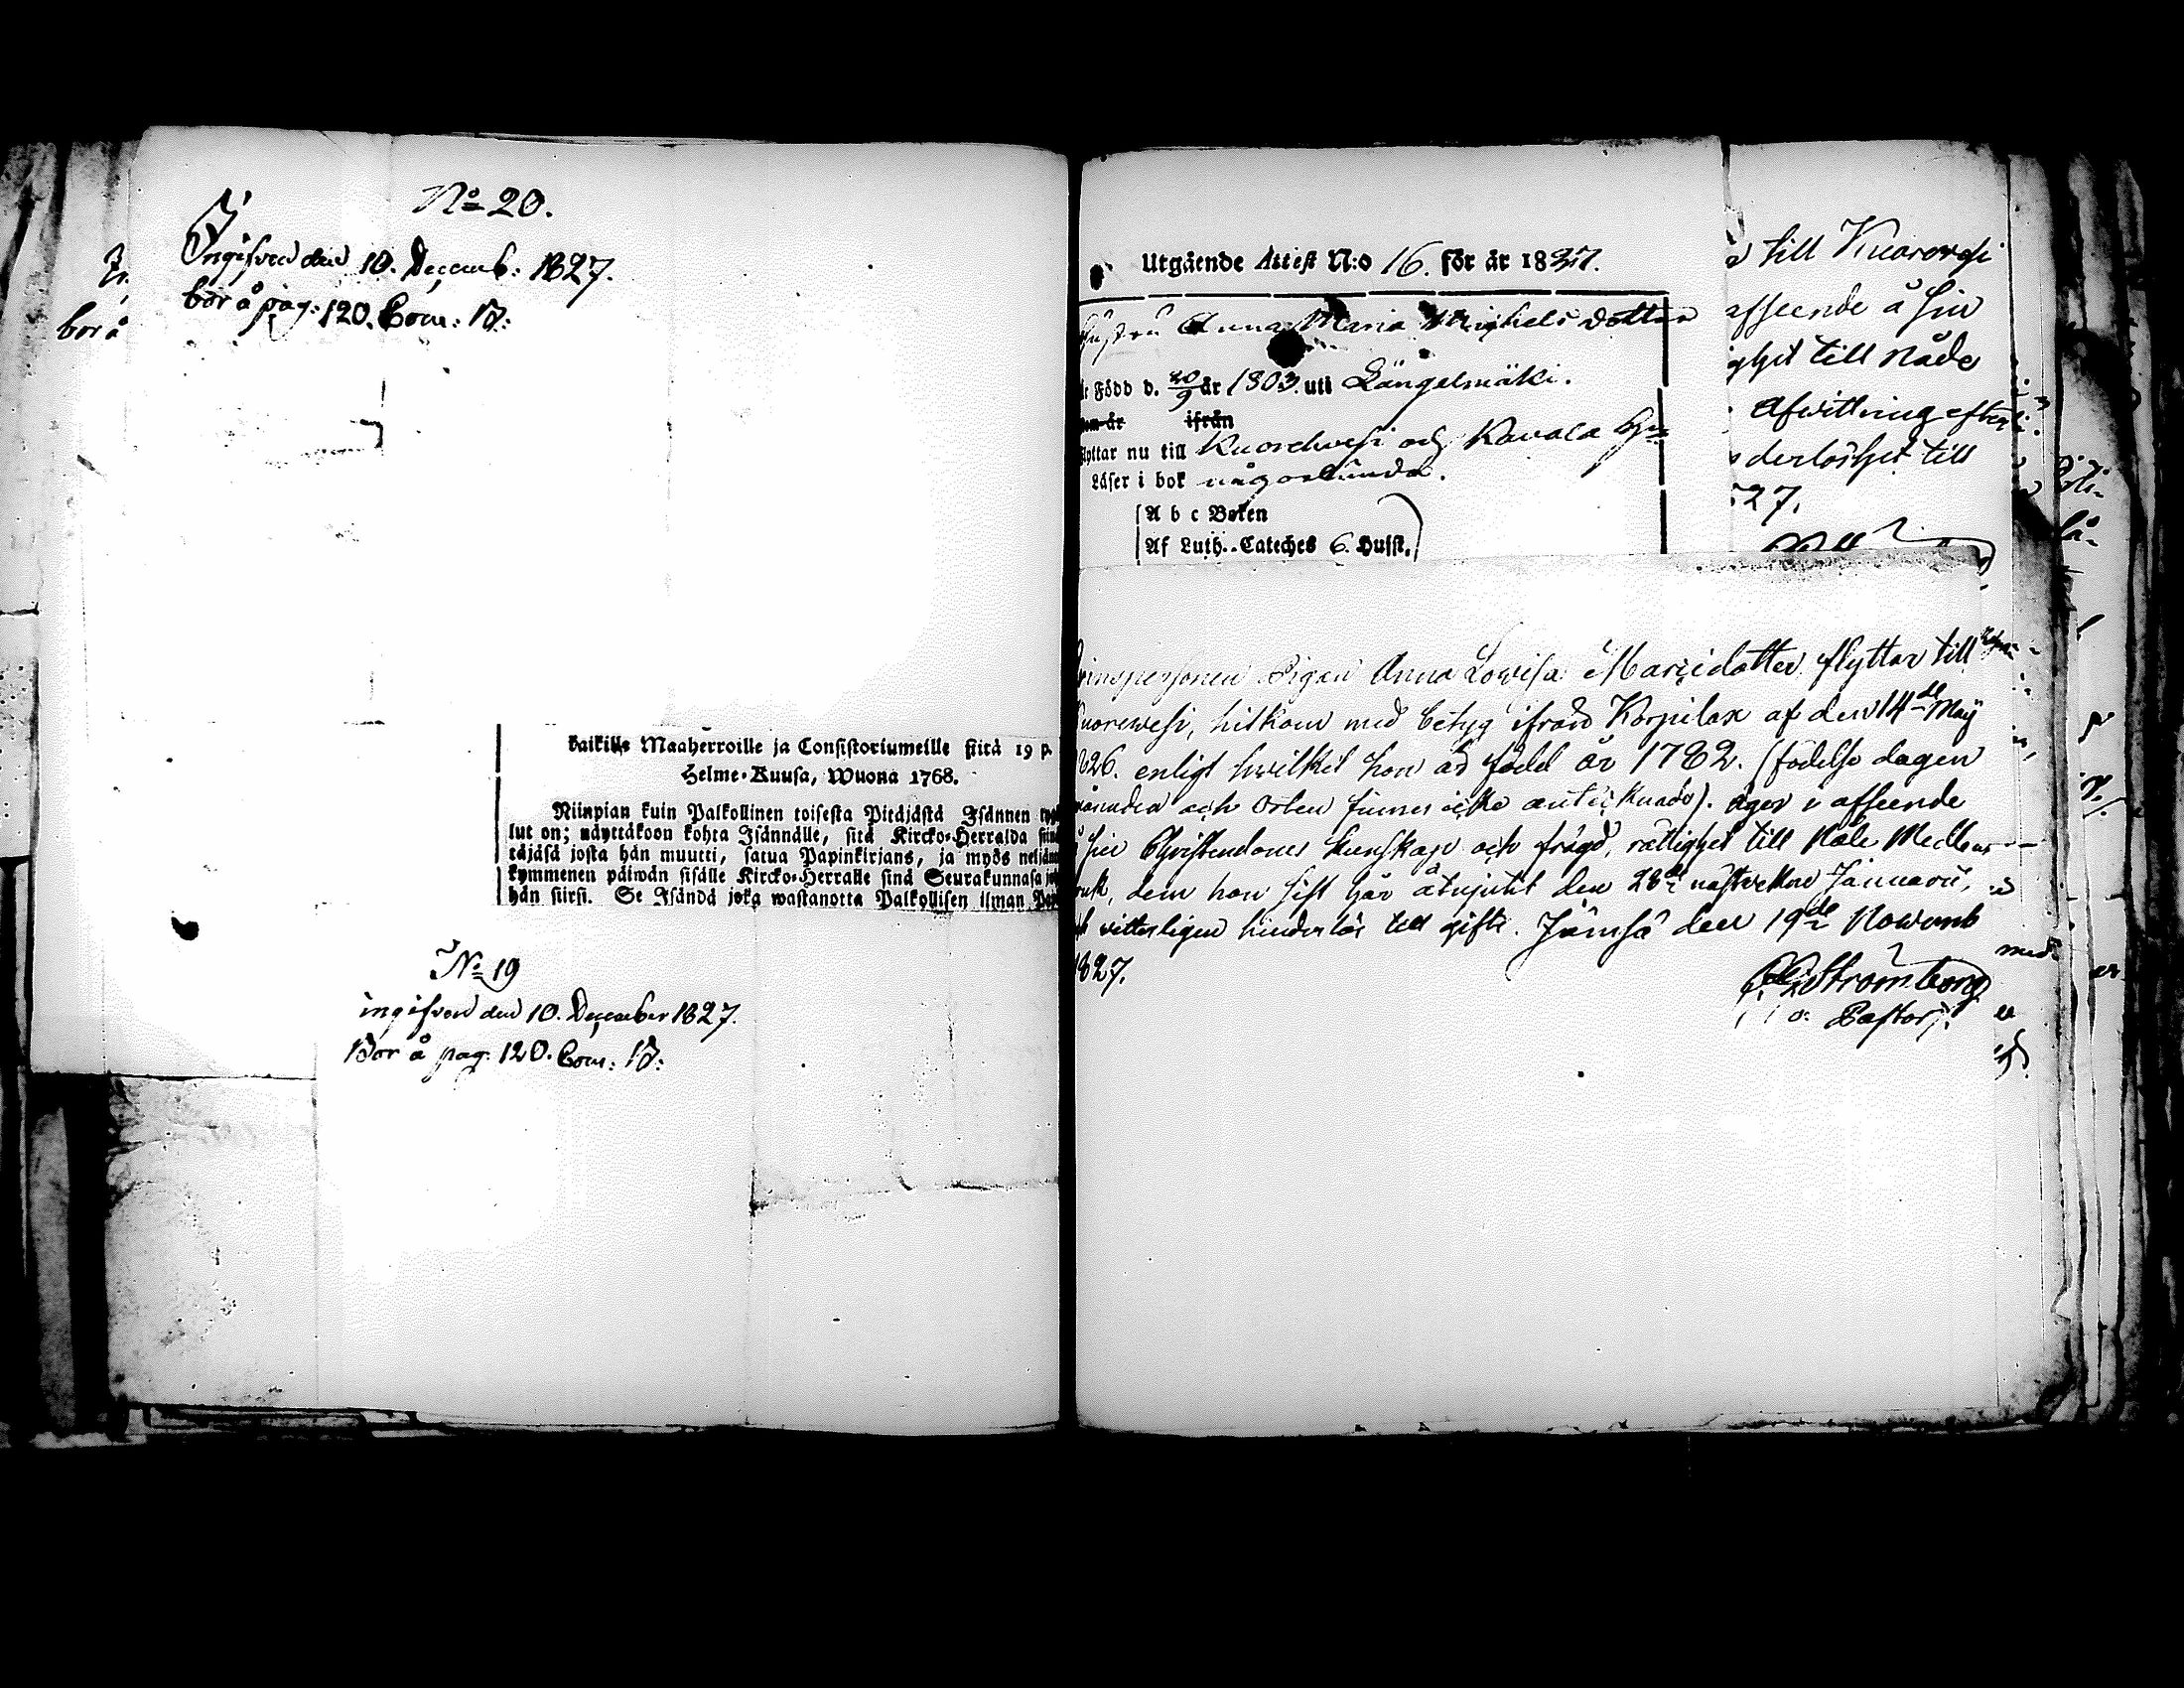 No 20.
Ingifven den 10. Decemb: 1827.
bor å pag: 120. Com: B:
bor å
kaikille Maaherroille ja Consistoriumeille siitä 19 p.
Helme-Kuusa, Wuona 1768.
Niinpian kuin Palkollinen toisesta Pitäjästä Isännen
lut on; näyttäkoon kohta Isännälle, sitä Kircko-Herralda
täjäsä josta hän muutti, saatua Papinkirjans, ja myös
kymmenen päiwän sisälle Kircko-Herralle sinä Seurakunnasa
hän siirsi. Se Isändä joka wastanotta Palkollisen ilman
No 19
ingifven den 10. December 1827.
Bor å pag: 120. Com: B:
Utgående Attest N:o 16. för år 1827.
Hustru Anna Maria Michels dotter
är Född d. 20/9 år 1803. uti Längelmäki.
kom år ifrån
flyttar nu till Kuorehvesi och Kavala
Läser i bok någorlunda.
A b c Boken
Af Luth. Cateches 6. Hufst.
till Kuorevesi
afseende å sin
till Nåde
Afvittring efter
derlöshet till
27.
Pigan Anna Lovisa Mariædotter flyttar till
Kuorewesi, hitkom med betyg ifrån Korpilax af den 14de Maij
1826. enligt hvilket hon är född år 1782. (födelse dagen
månaden och orten finnes icke antecknade). äger i afseende
å sin Christendoms kunskap och frägd, rättighet till Nåde Medlens
bruk, dem hon sist här åtnjutit den 28de nästvekne Januarii,
och vitterligen hinderlös till gifte. Jämsä den 19de Novemb
1827.
Strömborg
Pastor.